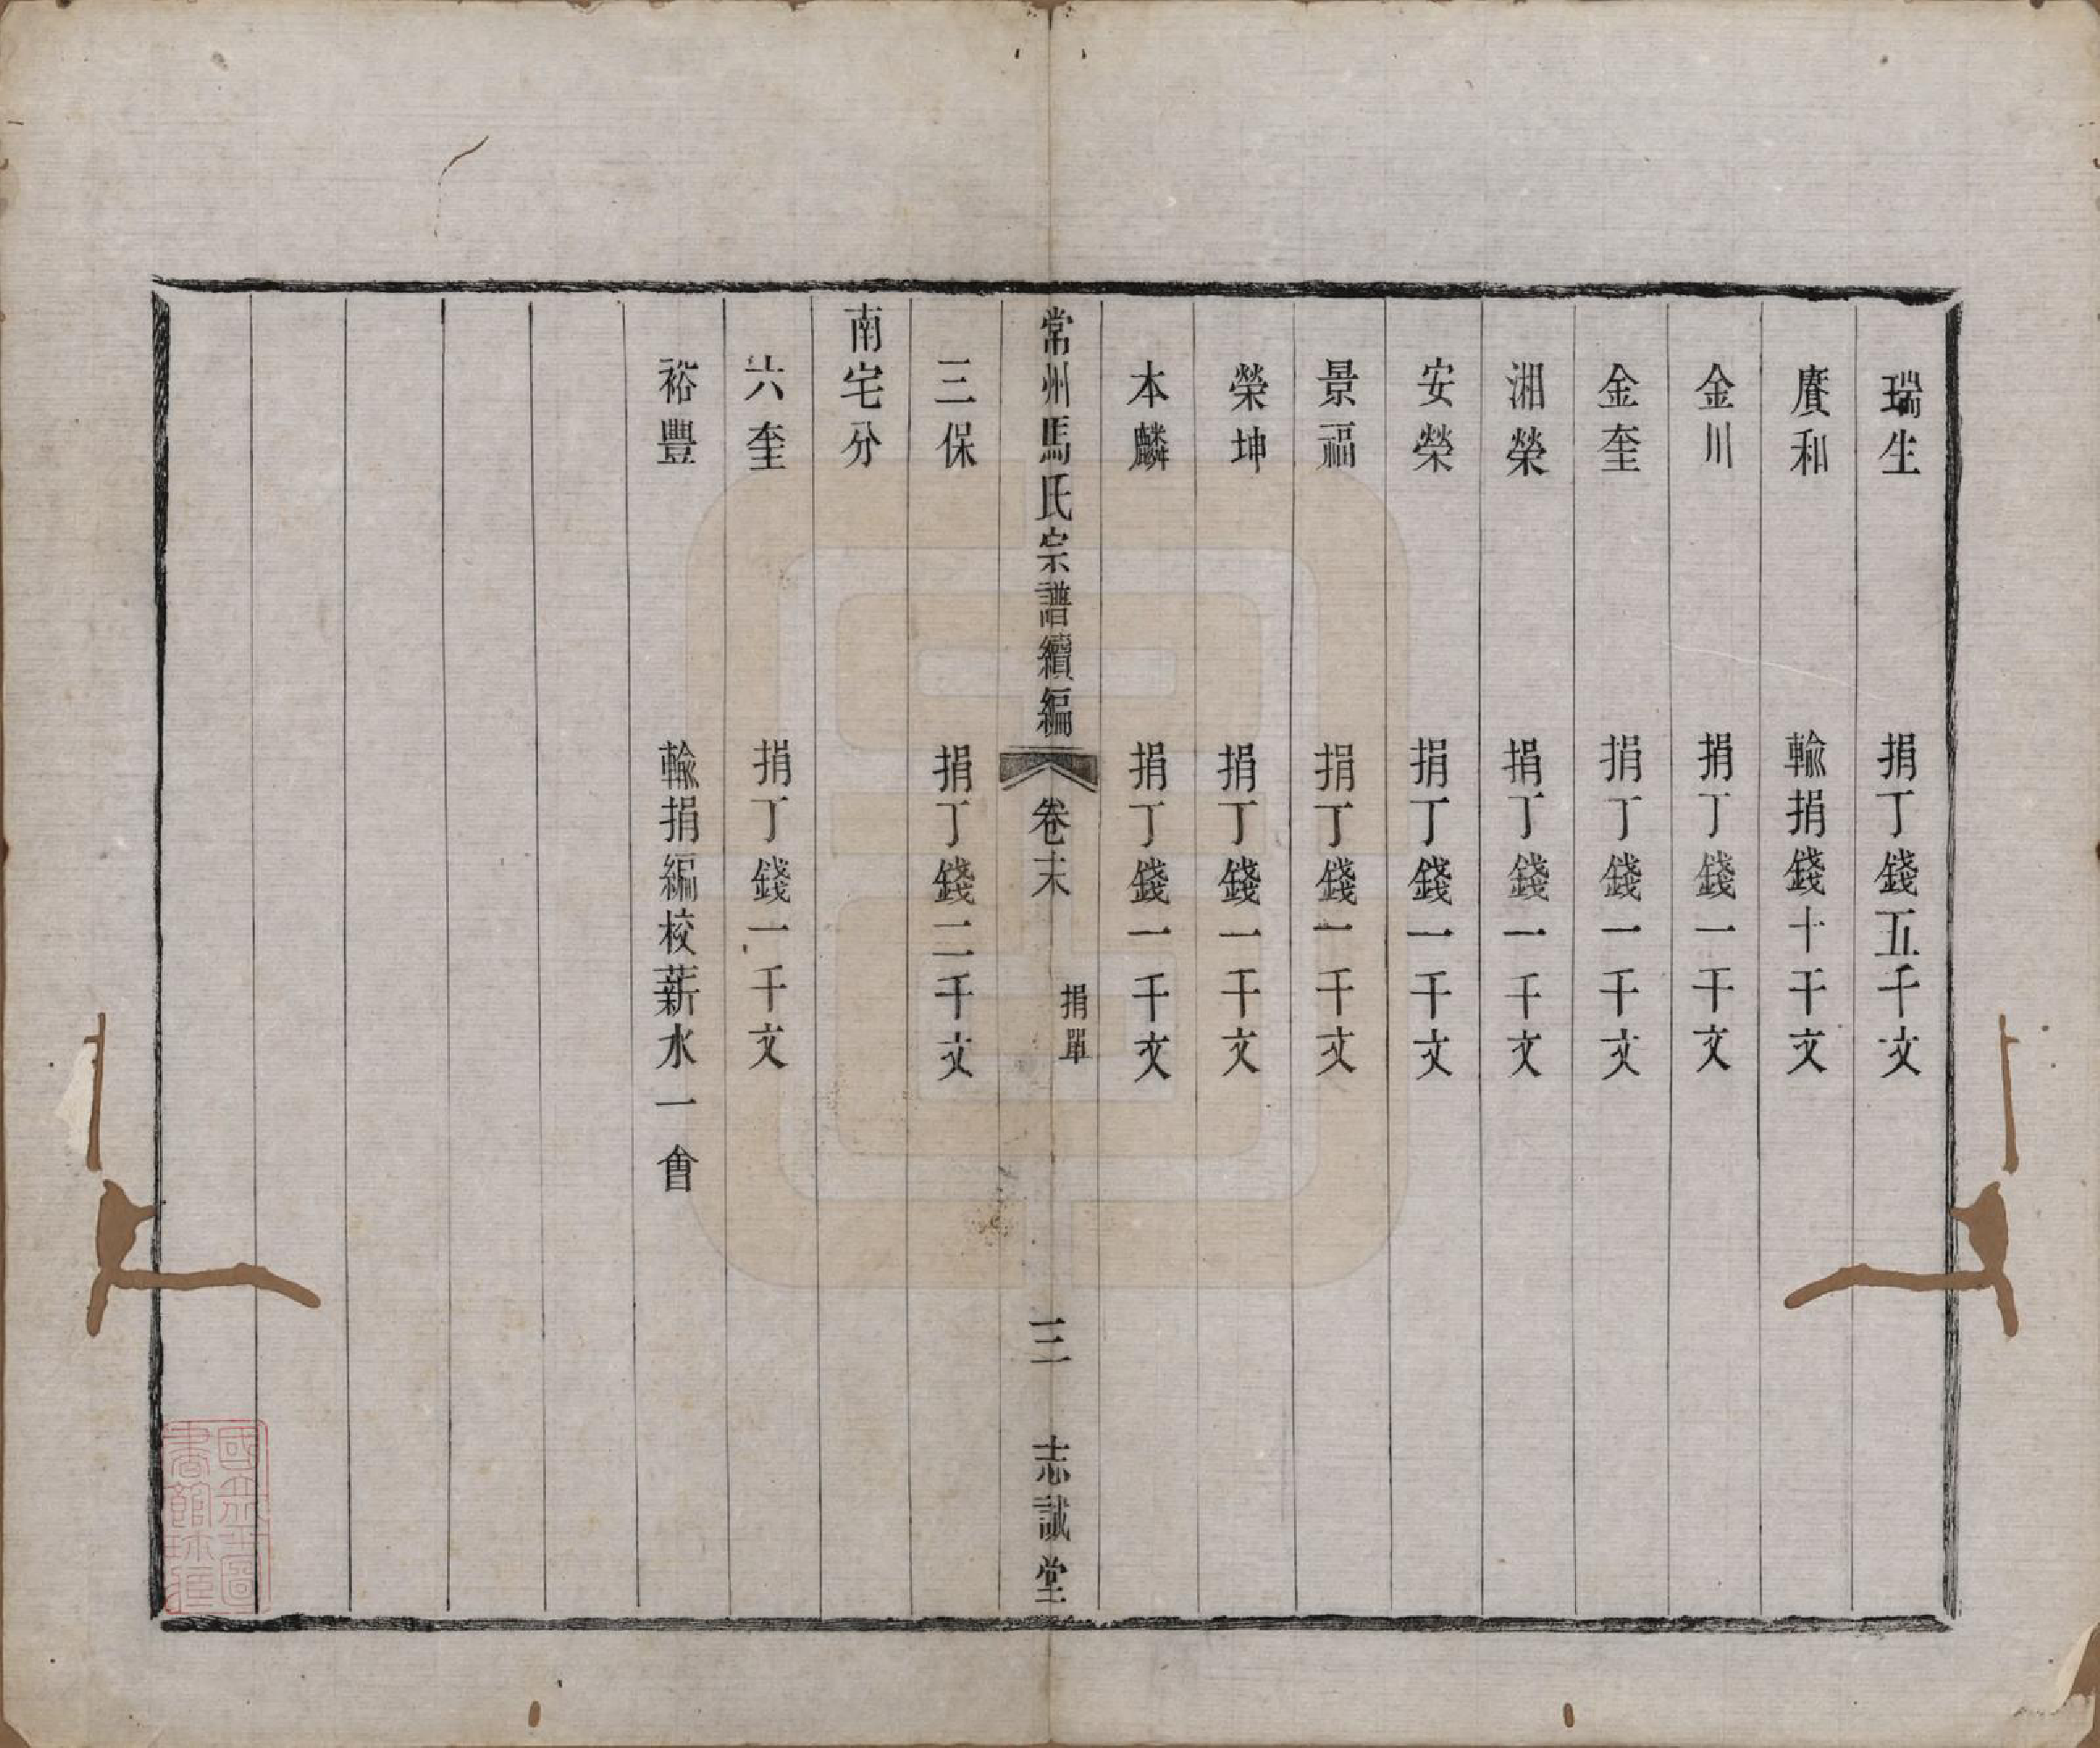 瑞生 捐丁錢五千文
賡和 輸捐錢十千文
金川 捐丁錢一千文
金奎 捐丁錢一千文
湘榮 捐丁錢一千文
安榮 捐丁錢一千文
景福 捐丁錢一千文
榮坤 捐丁錢一千文
本麟 捐丁錢一千文
常州馬氏宗譜續編 卷末 捐單 三 志誠堂
三保 捐丁錢二千文
南宅分
六奎 捐丁錢一千文
裕豐 輸捐編校薪水一會
國立北平圖書館珍藏